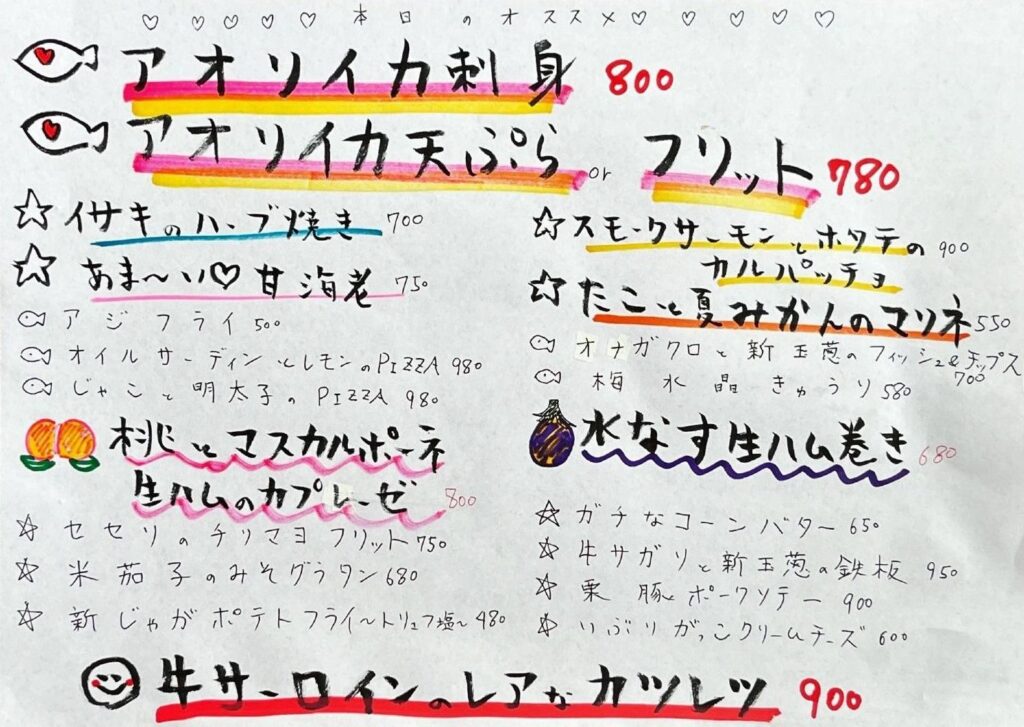 ♡ ♡ ♡ ♡ ♡ 本日 の オススメ ♡ ♡ ♡ ♡ ♡
アオリイカ刺身 800
アオリイカ天ぷら or フリット 780
☆ イサキのハーブ焼き 700
☆ あま〜い♡甘海老 750
アジフライ 500
オイルサーディンとレモンのPIZZA 980
じゃこと明太子のPIZZA 980
☆ スモークサーモンとホタテの
カルパッチョ 900
☆ たこと夏みかんのマリネ 550
オナガクロと新玉葱のフィッシュ&チップス
700
梅水晶きゅうり 580
桃とマスカルポーネ
生ハムのカプレーゼ 800
☆ セセリのチリマヨフリット 750
☆ 米茄子のみそグラタン 680
☆ 新じゃがポテトフライ〜トリュフ塩〜 480
水なす生ハム巻き 680
☆ ガチなコーンバター 650
☆ 牛サガリと新玉葱の鉄板 950
☆ 栗豚とポークソテー 900
☆ いぶりがっこクリームチーズ 600
牛サーロインのレアなカツレツ 900